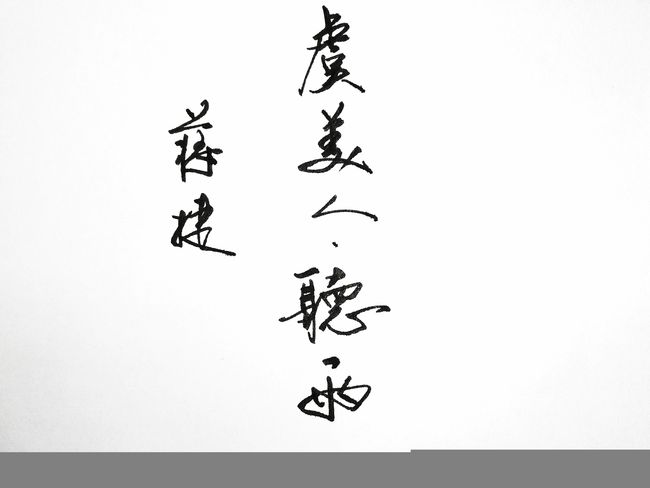 虞美人·聽雨
蒋捷